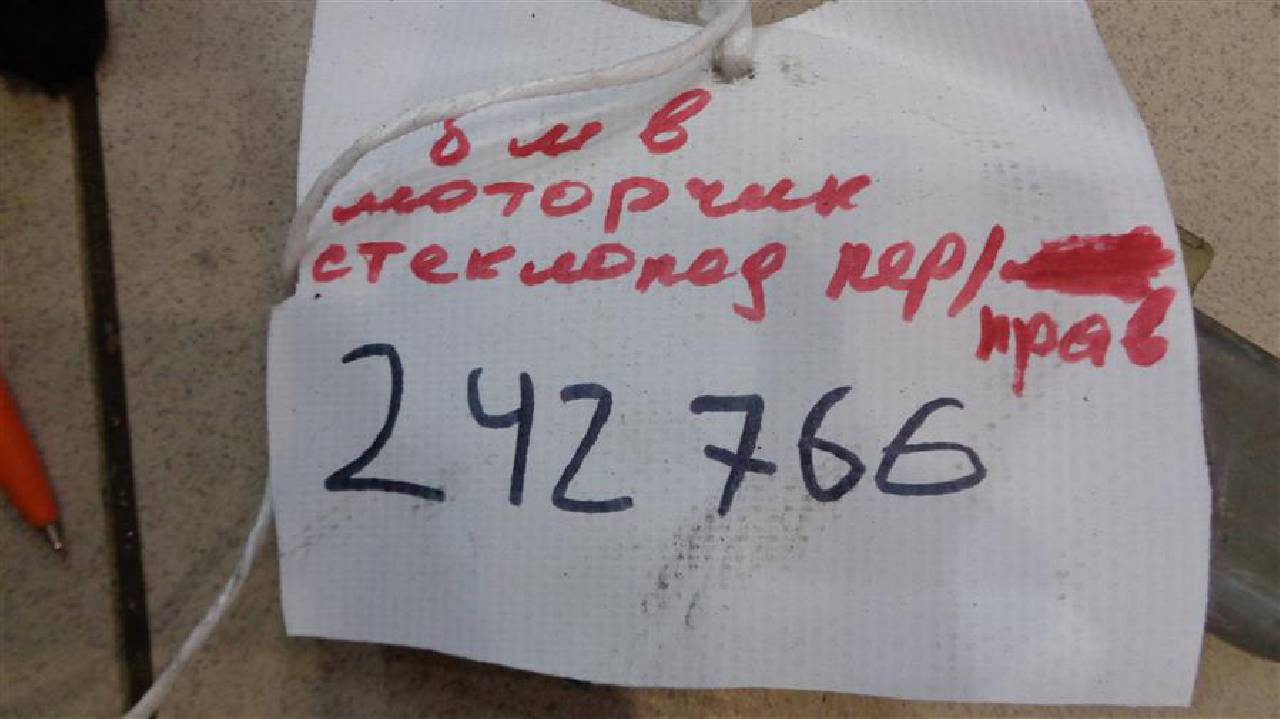 бмв
моторчик
стеклопод пер/
прав
242766